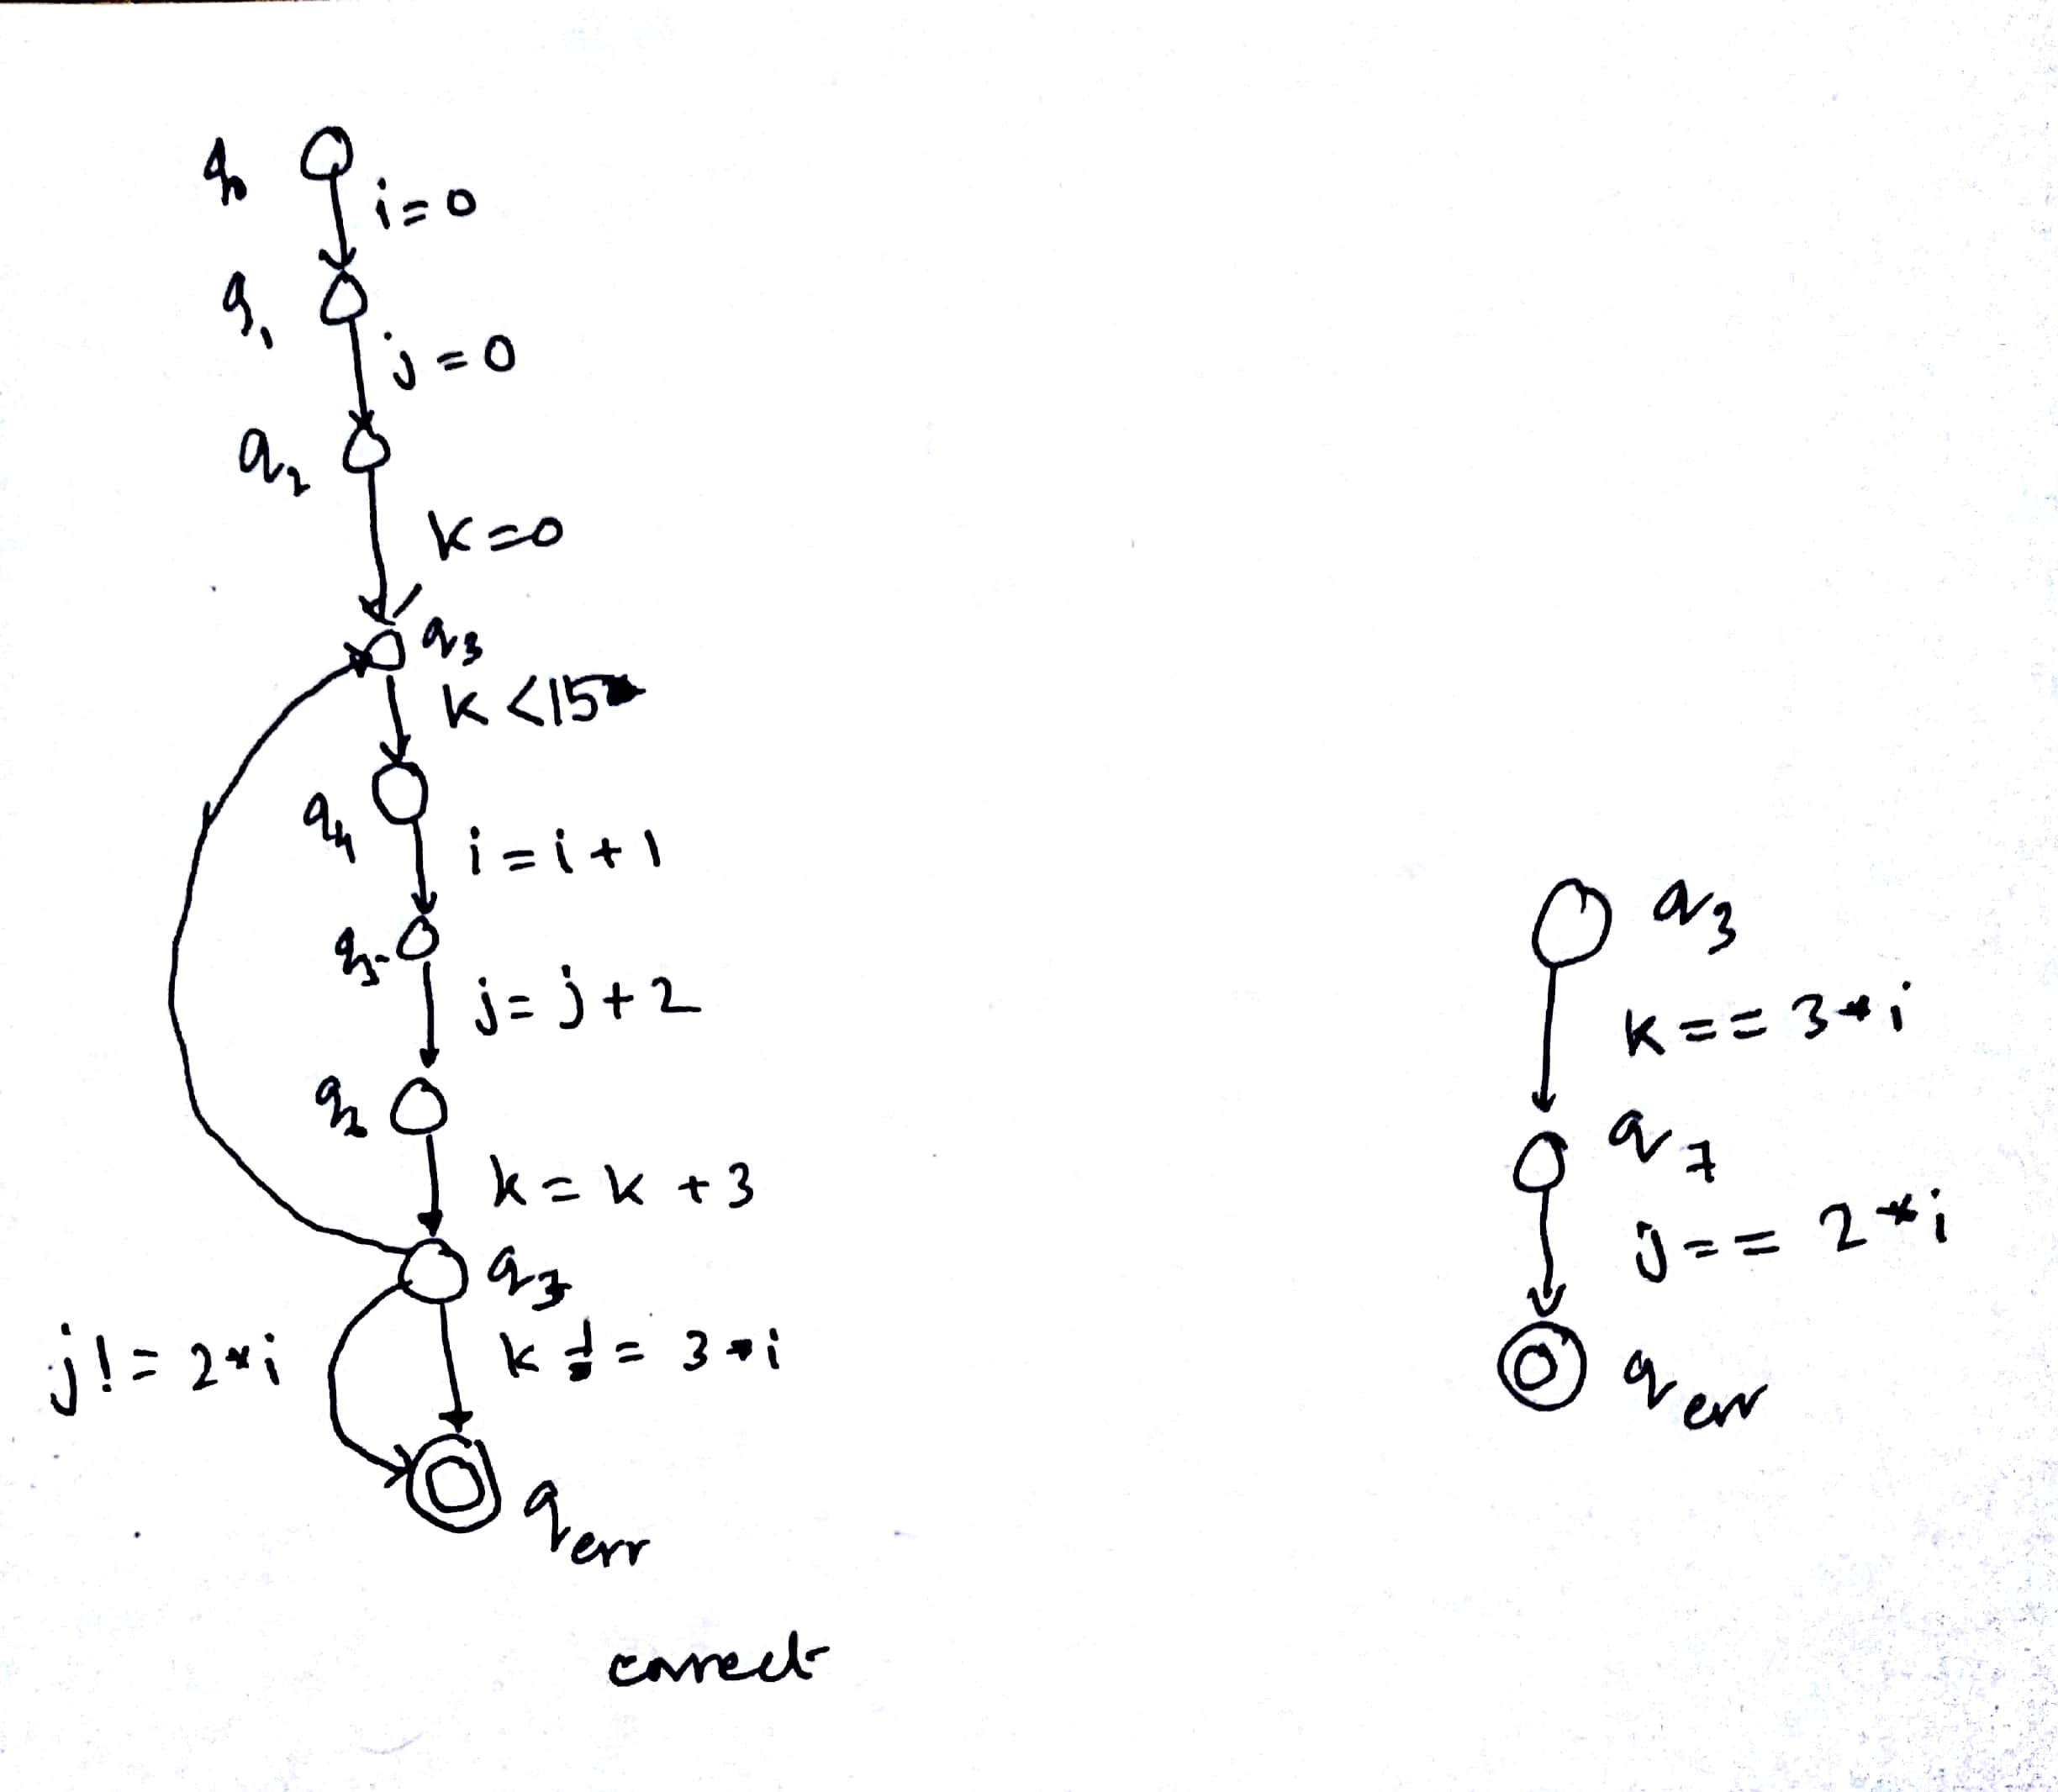 q0
i=0
q1
j=0
q2
k=0
q3
k<15
q4
i=i+1
q5
j=j+2
q6
k=k+3
q7
j!=2*i
k!=3*i
qerr
correct
q3
k==3*i
q7
j==2*i
qerr